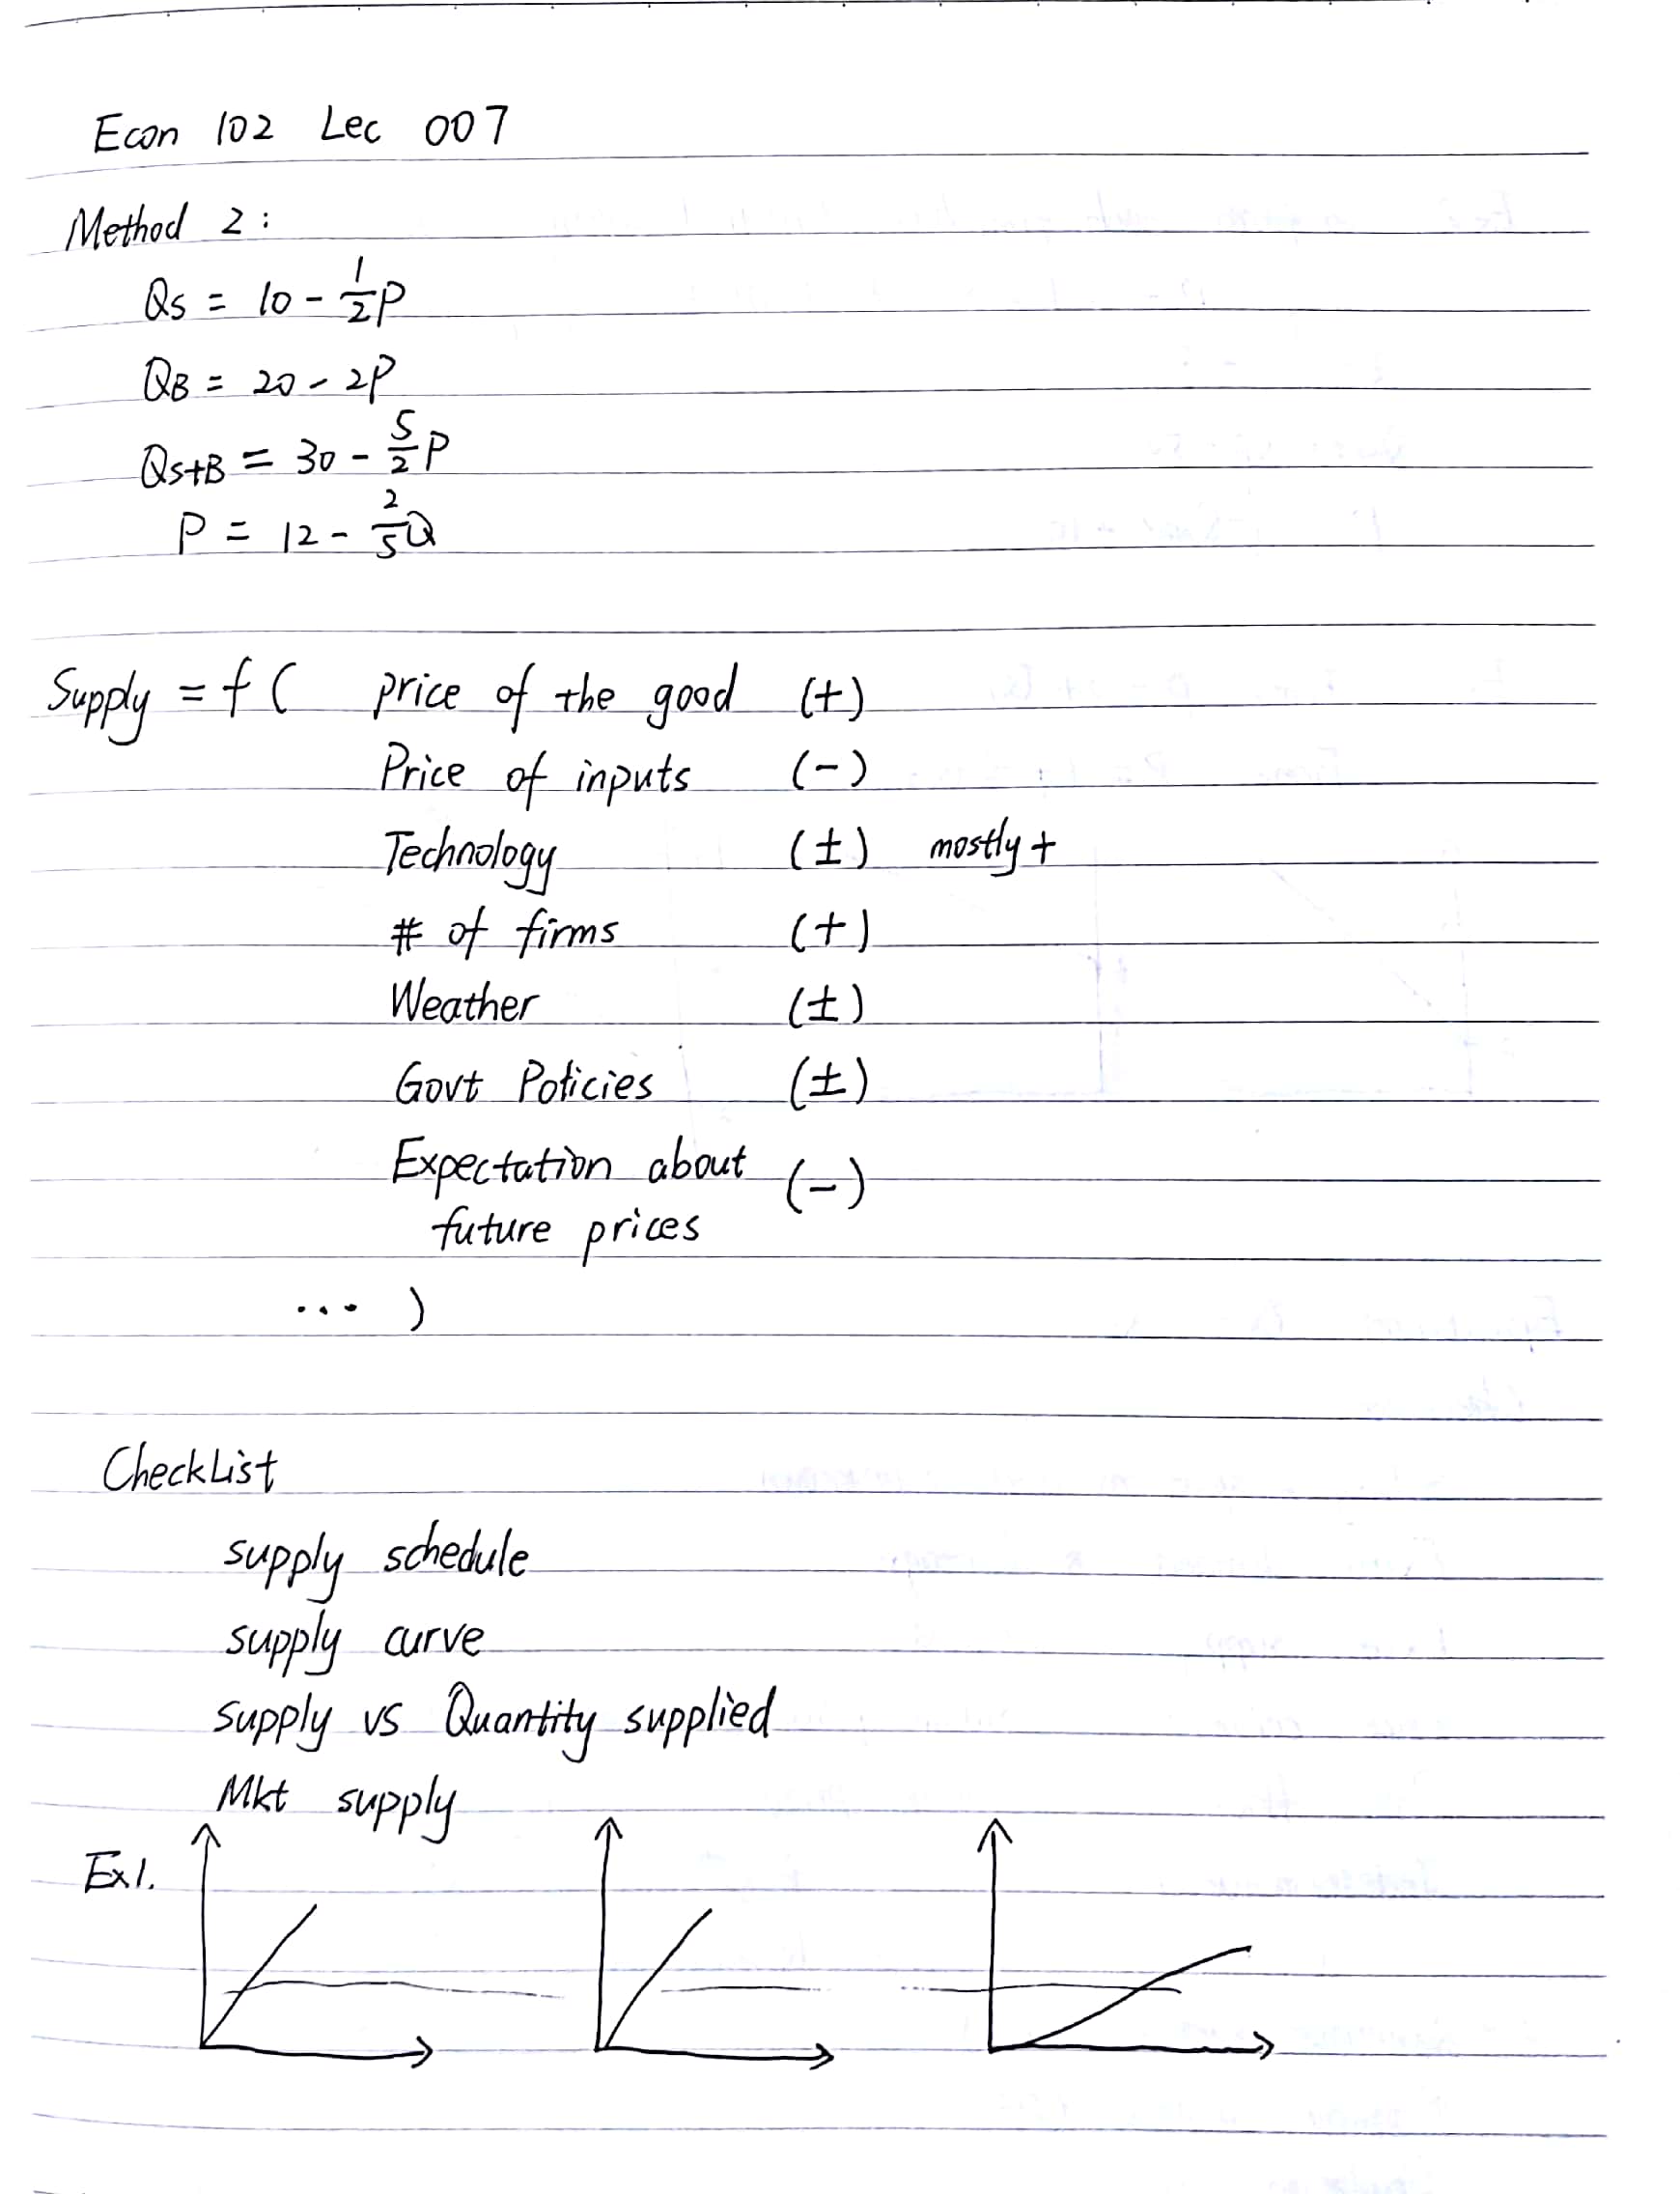 Econ 102 Lec 007
Method 2:
Qs = 10 - 1/2 P
QB = 20 - 2P
Qs+B = 30 - 5/2 P
P = 12 - 2/5 Q
Supply = f ( price of the good (+)
Price of inputs (-)
Technology (±) mostly +
# of firms (+)
Weather (±)
Govt Policies (±)
Expectation about (-)
future prices
... )
CheckList
supply schedule
supply curve
supply vs Quantity supplied
Mkt supply
Ex1.